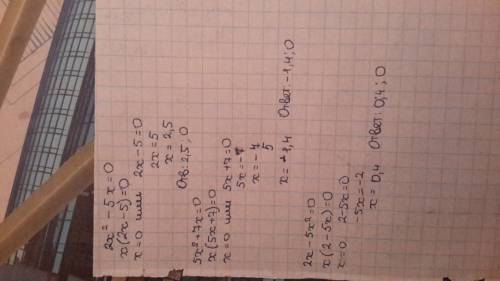 2x² - 5x = 0
x(2x-5)=0
x=0 или 2x-5=0
2x=5
x=2,5
Отв: 2,5; 0
5x²+7x=0
x(5x+7)=0
x=0 или 5x+7=0
5x=-7
x=-7/5
x=-1,4 Ответ: -1,4; 0
2x-5x²=0
x(2-5x)=0
x=0 2-5x=0
-5x=-2
x=0,4 Ответ: 0,4; 0